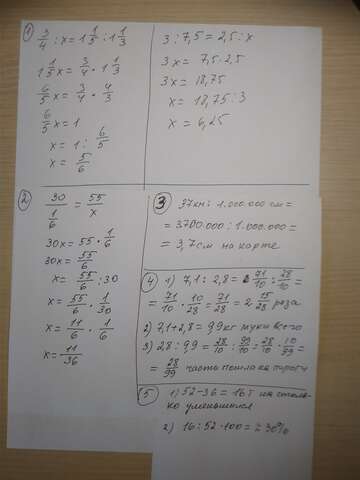 ①
3/4 : x = 1 1/5 : 1 1/3
1 1/5 x = 3/4 · 1 1/3
6/5 x = 3/4 · 4/3
6/5 x = 1
x = 1 : 6/5
x = 5/6
3 : 7,5 = 2,5 : x
3x = 7,5 · 2,5
3x = 18,75
x = 18,75 : 3
x = 6,25
②
30 / 1/6 = 55/x
30x = 55 · 1/6
30x = 55/6
x = 55/6 : 30
x = 55/6 · 1/30
x = 11/6 · 1/6
x = 11/36
③ 37км : 1.000.000 см =
= 3700.000 : 1.000.000 =
= 3,7см на карте
④ 1) 7,1 : 2,8 = 71/10 : 28/10 =
= 71/10 · 10/28 = 71/28 = 2 15/28 раза
2) 7,1+2,8 = 9,9кг муки всего
3) 2,8 : 9,9 = 28/10 : 99/10 = 28/10 · 10/99 =
= 28/99 часть пошла на пироги
⑤ 1) 52-36 = 16т на столь-
ко уменьшился
2) 16 : 52 · 100 = ≈ 30%